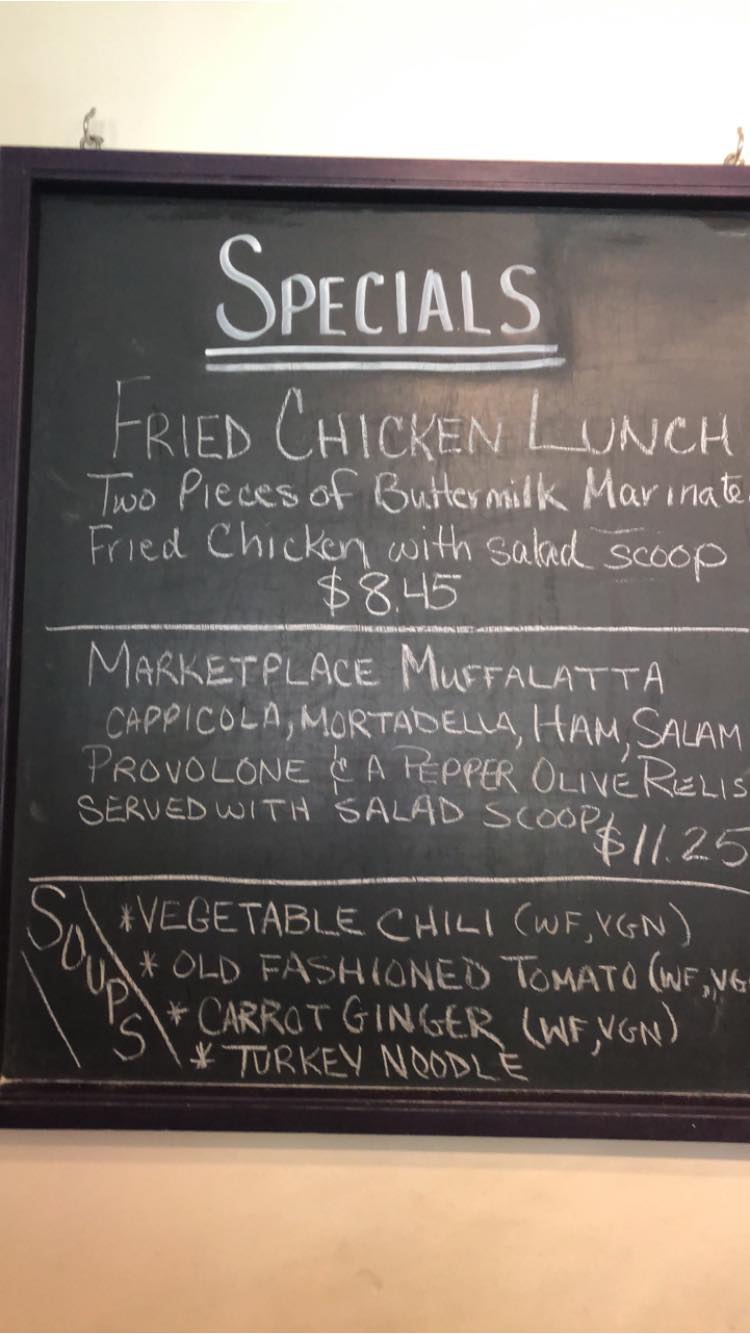 SPECIALS
FRIED CHICKEN LUNCH
Two Pieces of Buttermilk Marinate
Fried Chicken with salad scoop
$8.45
MARKETPLACE MUFFALATTA
CAPPICOLA, MORTADELLA, HAM, SALAM
PROVOLONE & A PEPPER OLIVE RELIS
SERVED WITH SALAD SCOOP
$11.25
SOUPS
*VEGETABLE CHILI (WF, VGN)
* OLD FASHIONED TOMATO (WF, VG
* CARROT GINGER (WF, VGN)
* TURKEY NOODLE